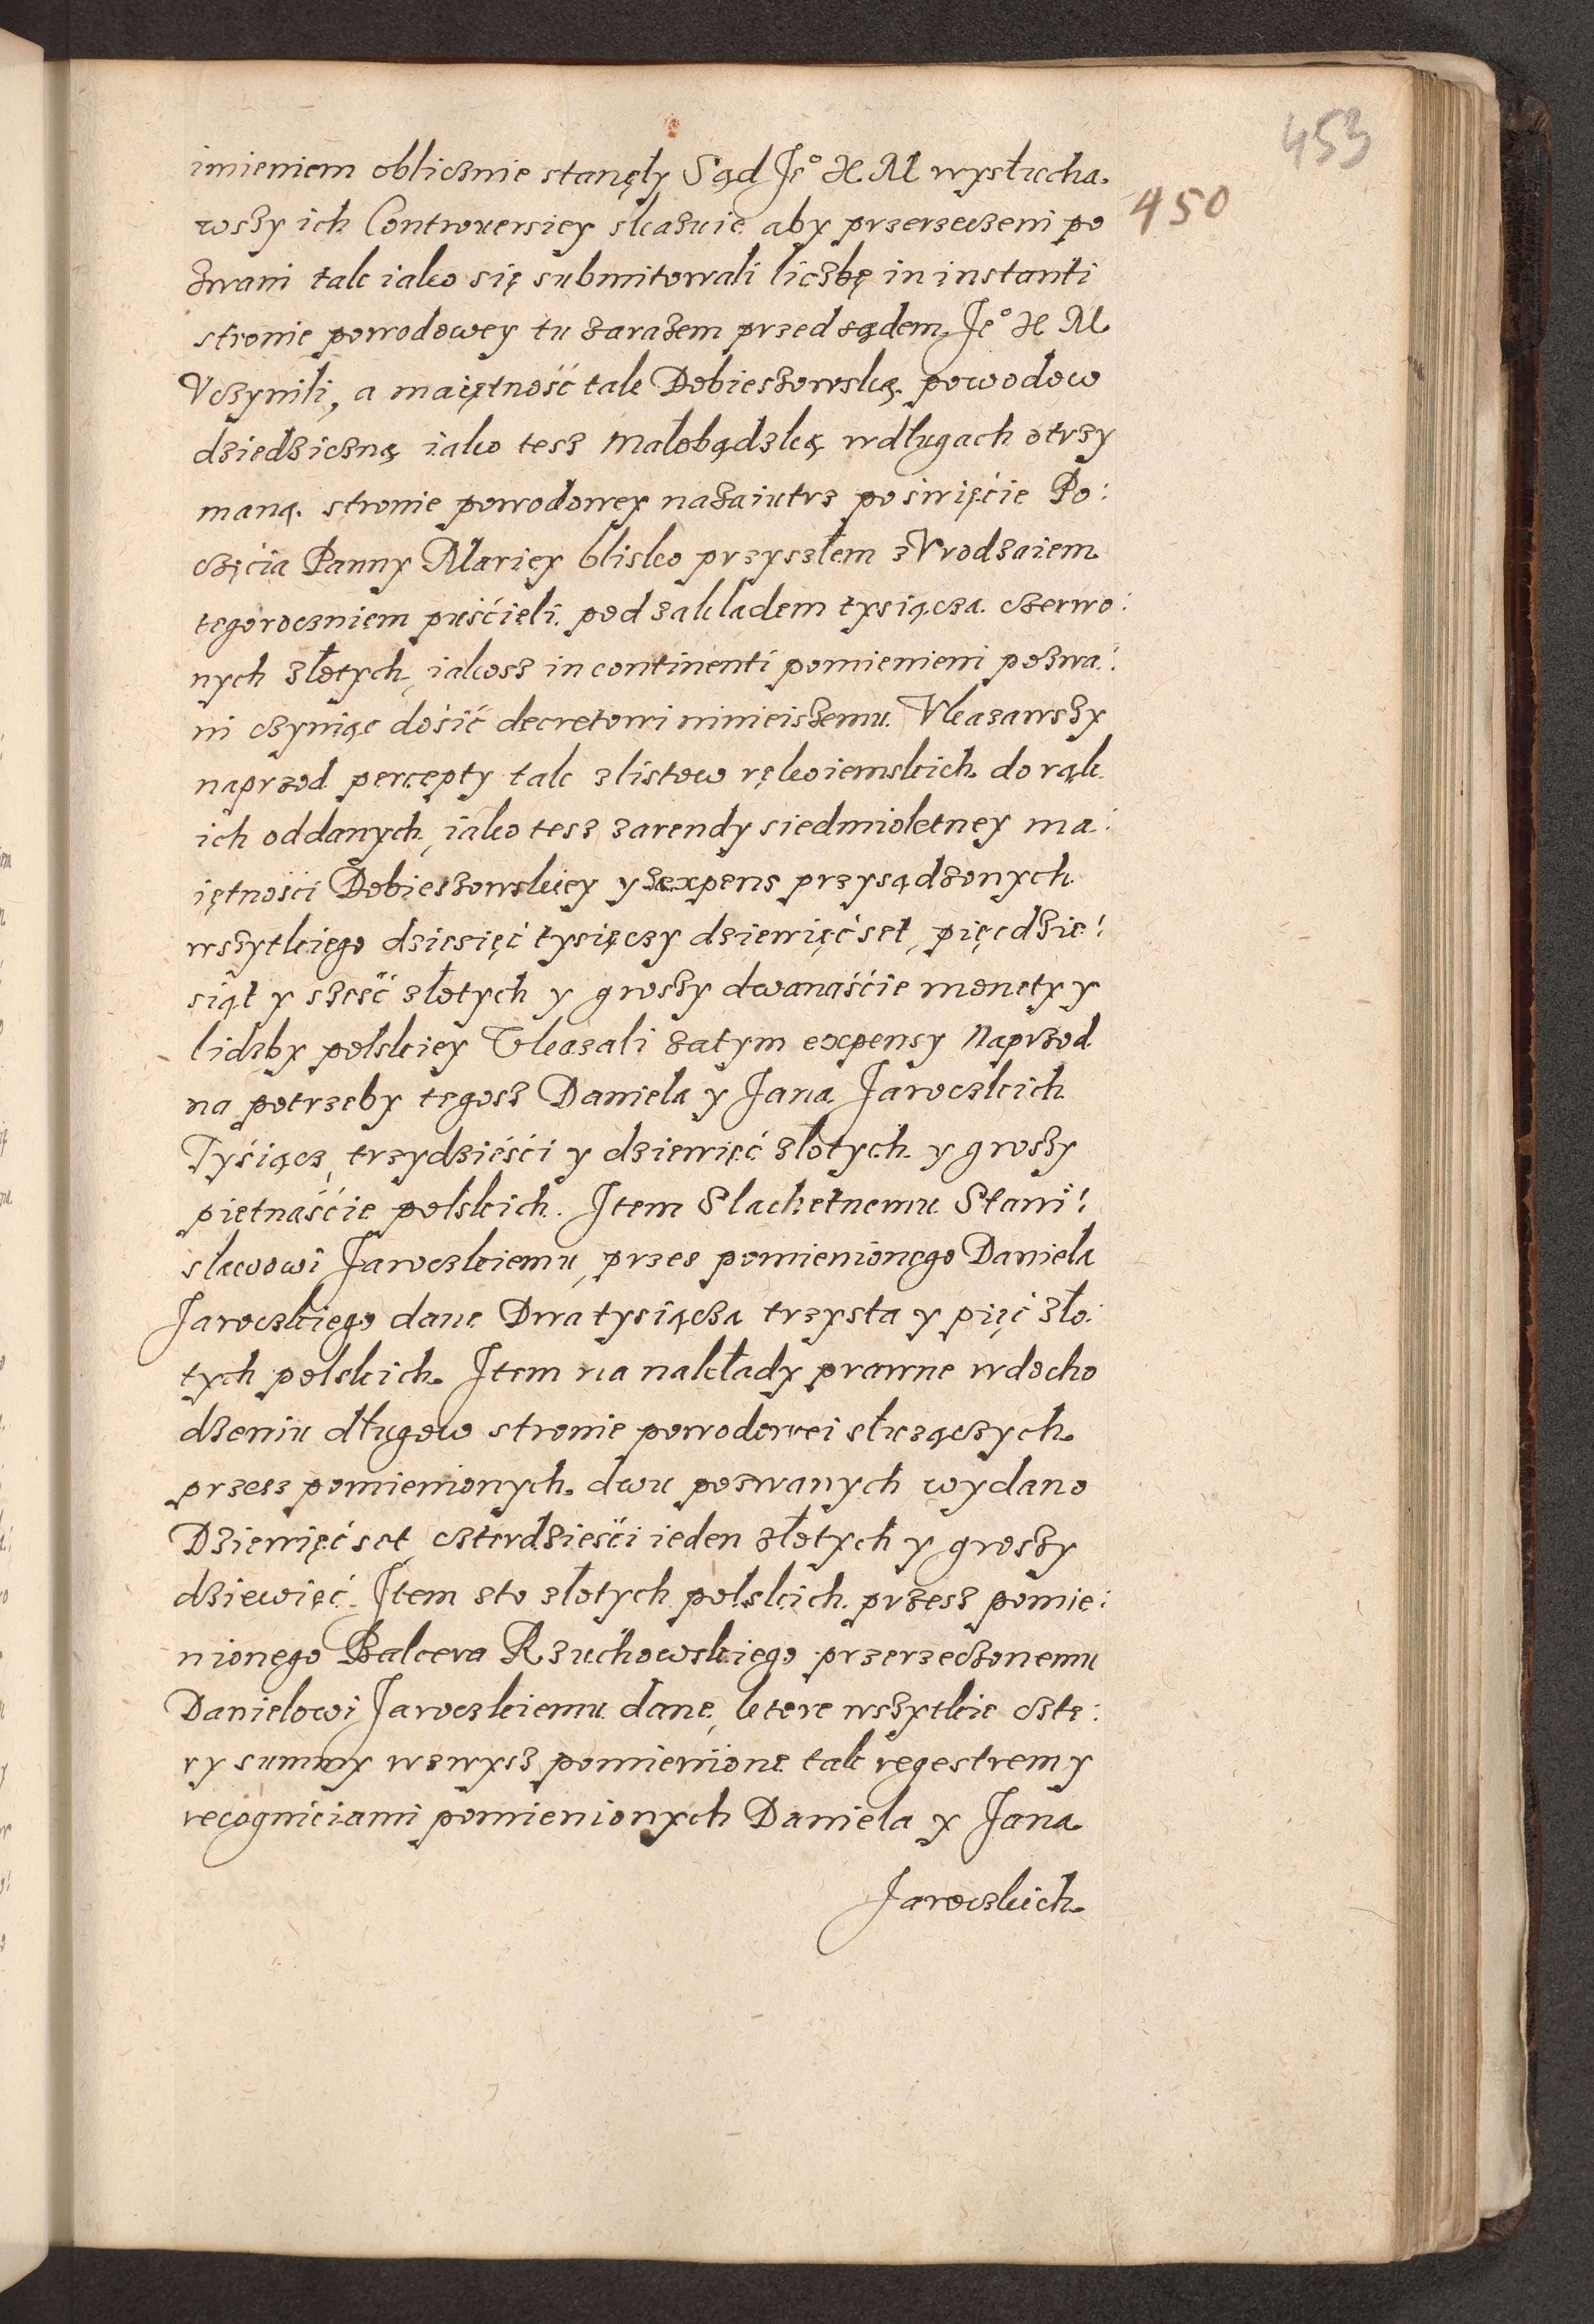 453
450
imieniem oblicznie stanęly Sąd Je° X. M wysłucha.
wszy ich Controuersiey skazuie aby przerzeczeni po
zwani tak iako się submitowali liczbę in instanti
stronie powodowey tu zarazem przed sądem Je° X M
Vczynili, a maiętność tak Dobieszowską powodow
dziedziczną iako tesz Małobądzką wdługach otrzy
maną. stronie powodowey nazaiutrz po święcie Po:
częcia Panny Mariey blisko przyszłem z Vrodzaiem
tegoroczniem puścieli. pod zakladem tysiącza. czerwo:
nych złotych, iakosz in continenti pomienieni pozwa:
ni cżyniąc dosić decretowi ninieiszemu. Vkazawszy
naprzod percepty tak z listow rękoiemskich do rąk
ich oddanych, iako tesz zarendy siedmioletney ma:
iętności Dobieszowskiey y zexpens przysądzonych
wszytkiego dziesięć tysięczy dziewięćset, pięcdzie:
siąt y sześć złotych y groszy dwanaście monety y
lidzby polskiey Vkazali zatym expensy Naprzod
na potrzeby tegosz Daniela y Jana Jaroczkich
Tysiącz, trzydzieści y dziewięć złotych y groszy
piętnaście polskich. Item Slachetnemu Stani:
slawowi Jaroczkiemu, przes pomienionego Daniela
Jaroczkiego dane Dwa tysiącza trzysta y pięć zło:
tych polskich. Item na nakłady prawne wdocho
dzeniu długow stronie powodowei służączych.
przesz pomienionych. dwu pozwanych wydano
Dziewięćset, czterdzieści ieden złotych y groszy
dziewięć. Item sto złotych polskich. przesz pomie:
nionego Balcera Rzuchowskiego przerzeczonemu
Danielowi Jaroczkiemu dane, ktore wszytkie czte:
ry summy wzwysz pomienione tak regestrem y
recogniciami pomienionych Daniela y Jana.
Jaroczkich.